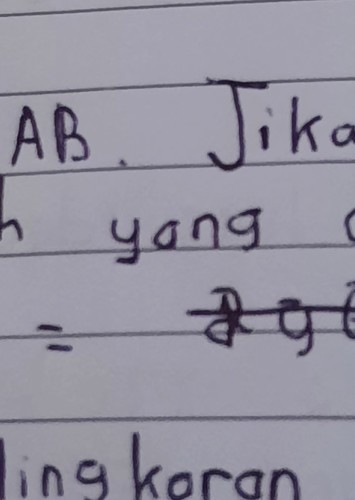 AB. Jika
yang
=
lingkaran